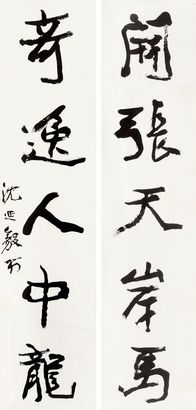 開張天岸馬
奇逸人中龍
沈延毅書